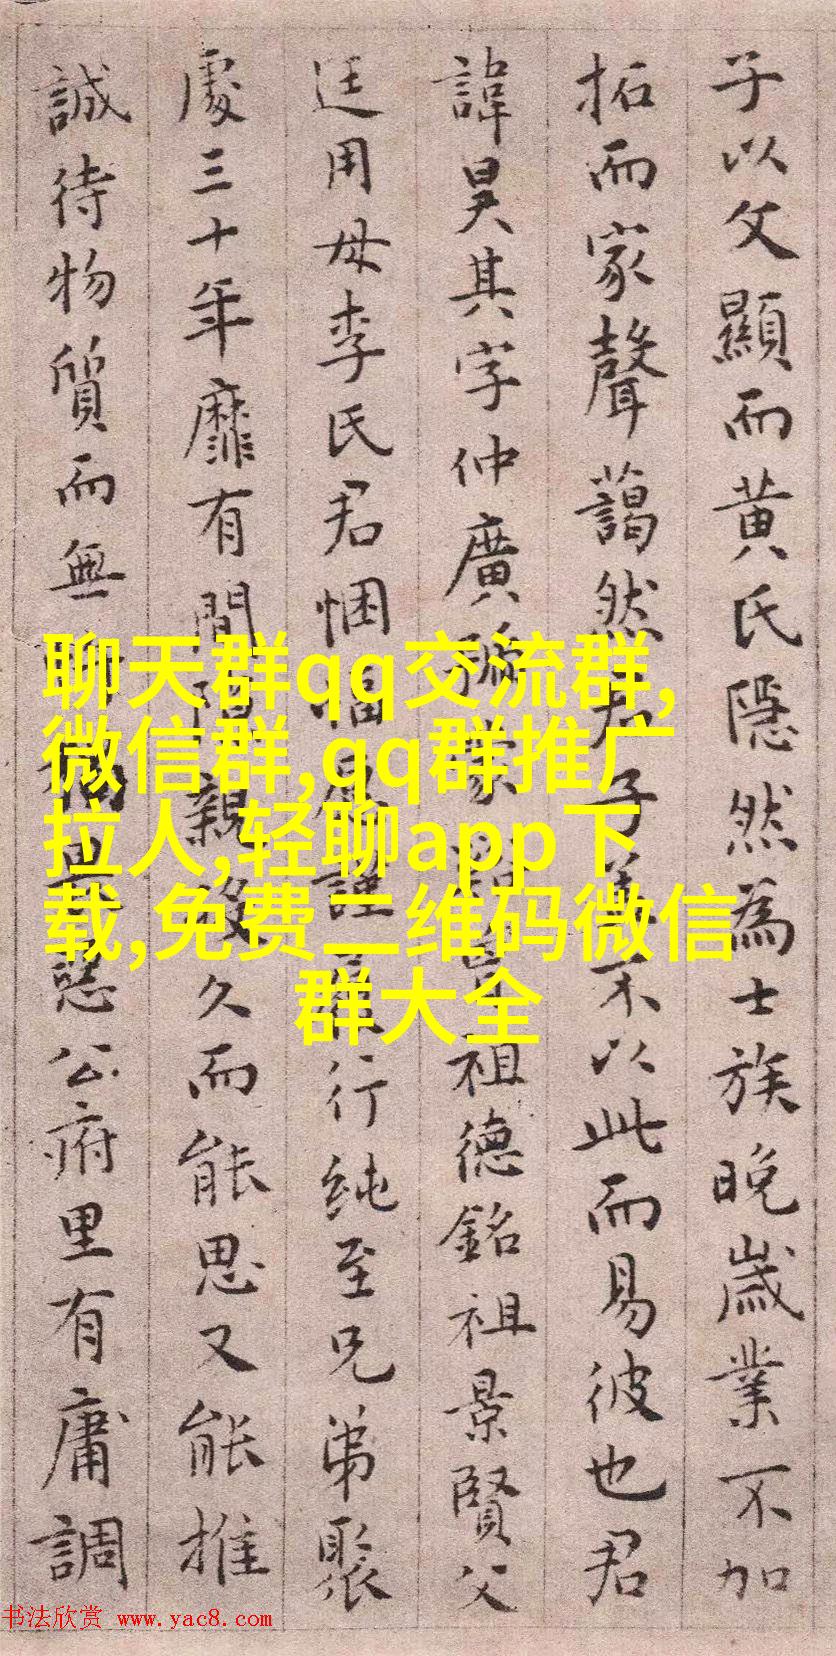 子以父顯而黃氏隱然為士族晚歲業不加
拓而家聲藹然君子不以此而易彼也君
諱昊其字仲廣號祖德銘祖景賢父
廷用母李氏君悃愊謹行純至兄弟聚
處三十年靡有間親久而能思又能推
誠待物質而無公府里有庸調
聊天群qq交流群,
微信群,qq群推广
拉人,轻聊app下
载,免费二维码微信
群大全
书法欣赏 www.yac8.com